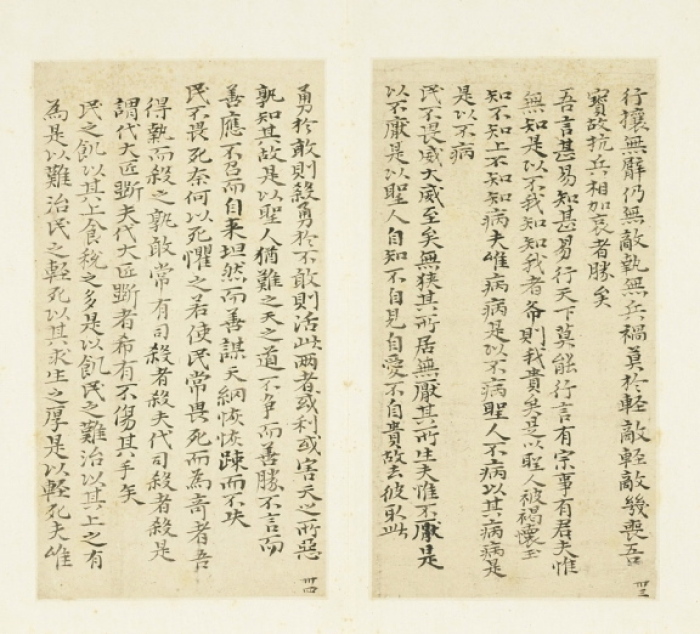 行攘無臂仍無敵執無兵禍莫於輕敵輕敵幾喪吾
寳故抗兵相加哀者勝矣
吾言甚易知甚易行天下莫能行言有宗事有君夫惟
無知是以不我知知我者希則我貴矣是以聖人被褐懷玉
知不知上不知知病夫唯病病是以不病聖人不病以其病病是
是以不病
民不畏威大威至矣無狹其所居無厭其所生夫惟不厭是
以不厭是以聖人自知不自見自愛不自貴故去彼取此
卌三
勇於敢則殺勇於不敢則活此兩者或利或害天之所惡
孰知其故是以聖人猶難之天之道不争而善勝不言而
善應不召而自来坦然而善謀天網恢恢踈而不失
民不畏死奈何以死懼之若使民常畏死而為奇者吾
得執而殺之孰敢常有司殺者殺夫代司殺者殺是
謂代大匠斲夫代大匠斲者希有不傷其手矣
民之飢以其上食稅之多是以飢民之難治以其上之有
為是以難治民之輕死以其求生之厚是以輕死夫唯
卌四